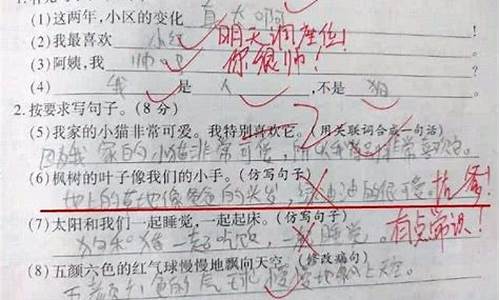 (1)这两年,小区的变化真大啊
(2)我最喜欢小红 明天调座位!
(3)阿姨,我帅吧 你很帅!
(4)我是人,不是狗
2.按要求写句子。(8分)
(5)我家的小猫非常可爱。我特别喜欢它。(用关联词合成一句话)
因为我家的小猫非常可爱,所以我特别非常喜欢它。
(6)枫树的叶子像我们的小手。(仿写句子)
地上的草地像爸爸的头发,绿油油的很可爱。抗争!
(7)太阳和我们一起睡觉,一起起床。(仿写句子)
狗和猪一起吃饭,一起睡觉。 有点常识!
(8)五颜六色的红气球慢慢地飘向天空。(修改病句)
五颜六色的气球慢慢地飘上天空。